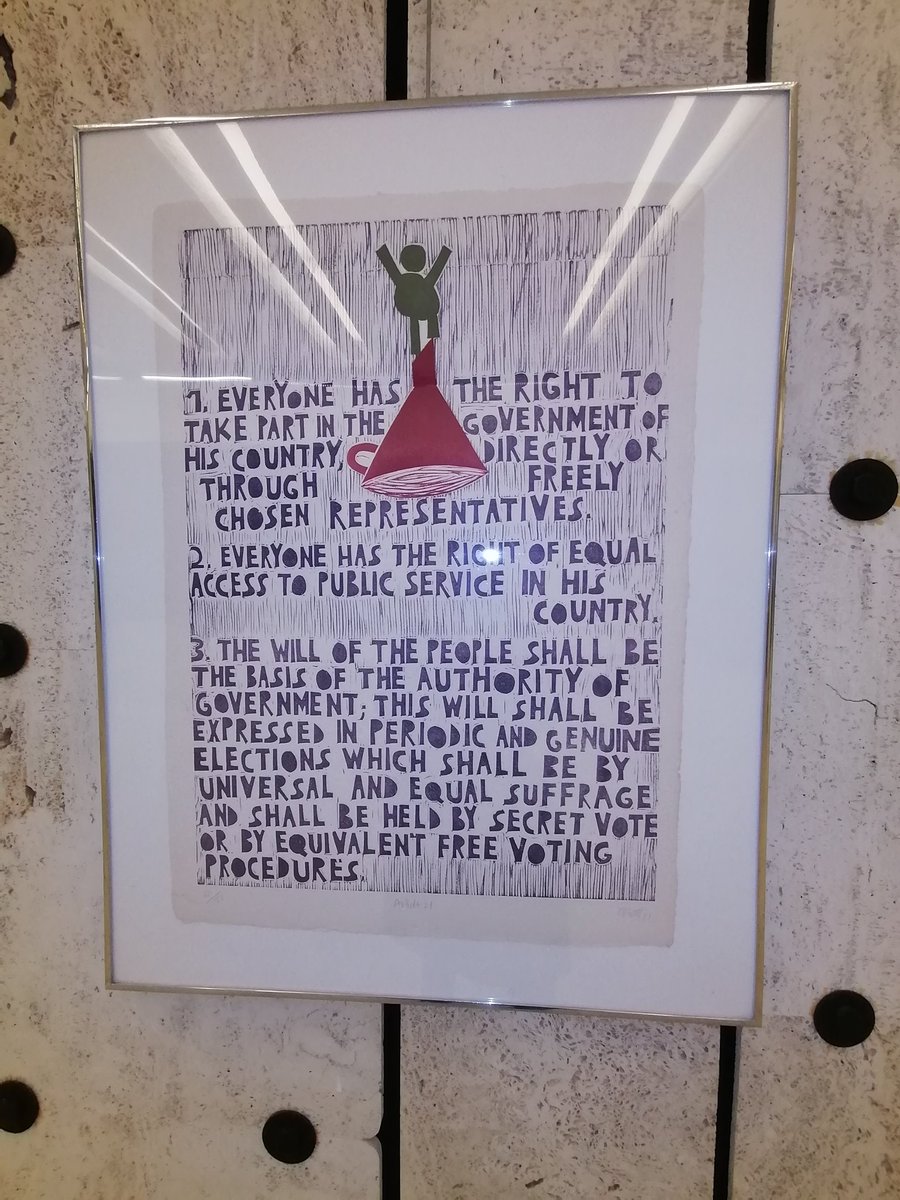 1. EVERYONE HAS THE RIGHT TO
TAKE PART IN THE GOVERNMENT OF
HIS COUNTRY, DIRECTLY OR
THROUGH FREELY
CHOSEN REPRESENTATIVES.
2. EVERYONE HAS THE RIGHT OF EQUAL
ACCESS TO PUBLIC SERVICE IN HIS
COUNTRY.
3. THE WILL OF THE PEOPLE SHALL BE
THE BASIS OF THE AUTHORITY OF
GOVERNMENT; THIS WILL SHALL BE
EXPRESSED IN PERIODIC AND GENUINE
ELECTIONS WHICH SHALL BE BY
UNIVERSAL AND EQUAL SUFFRAGE
AND SHALL BE HELD BY SECRET VOTE
OR BY EQUIVALENT FREE VOTING
PROCEDURES.